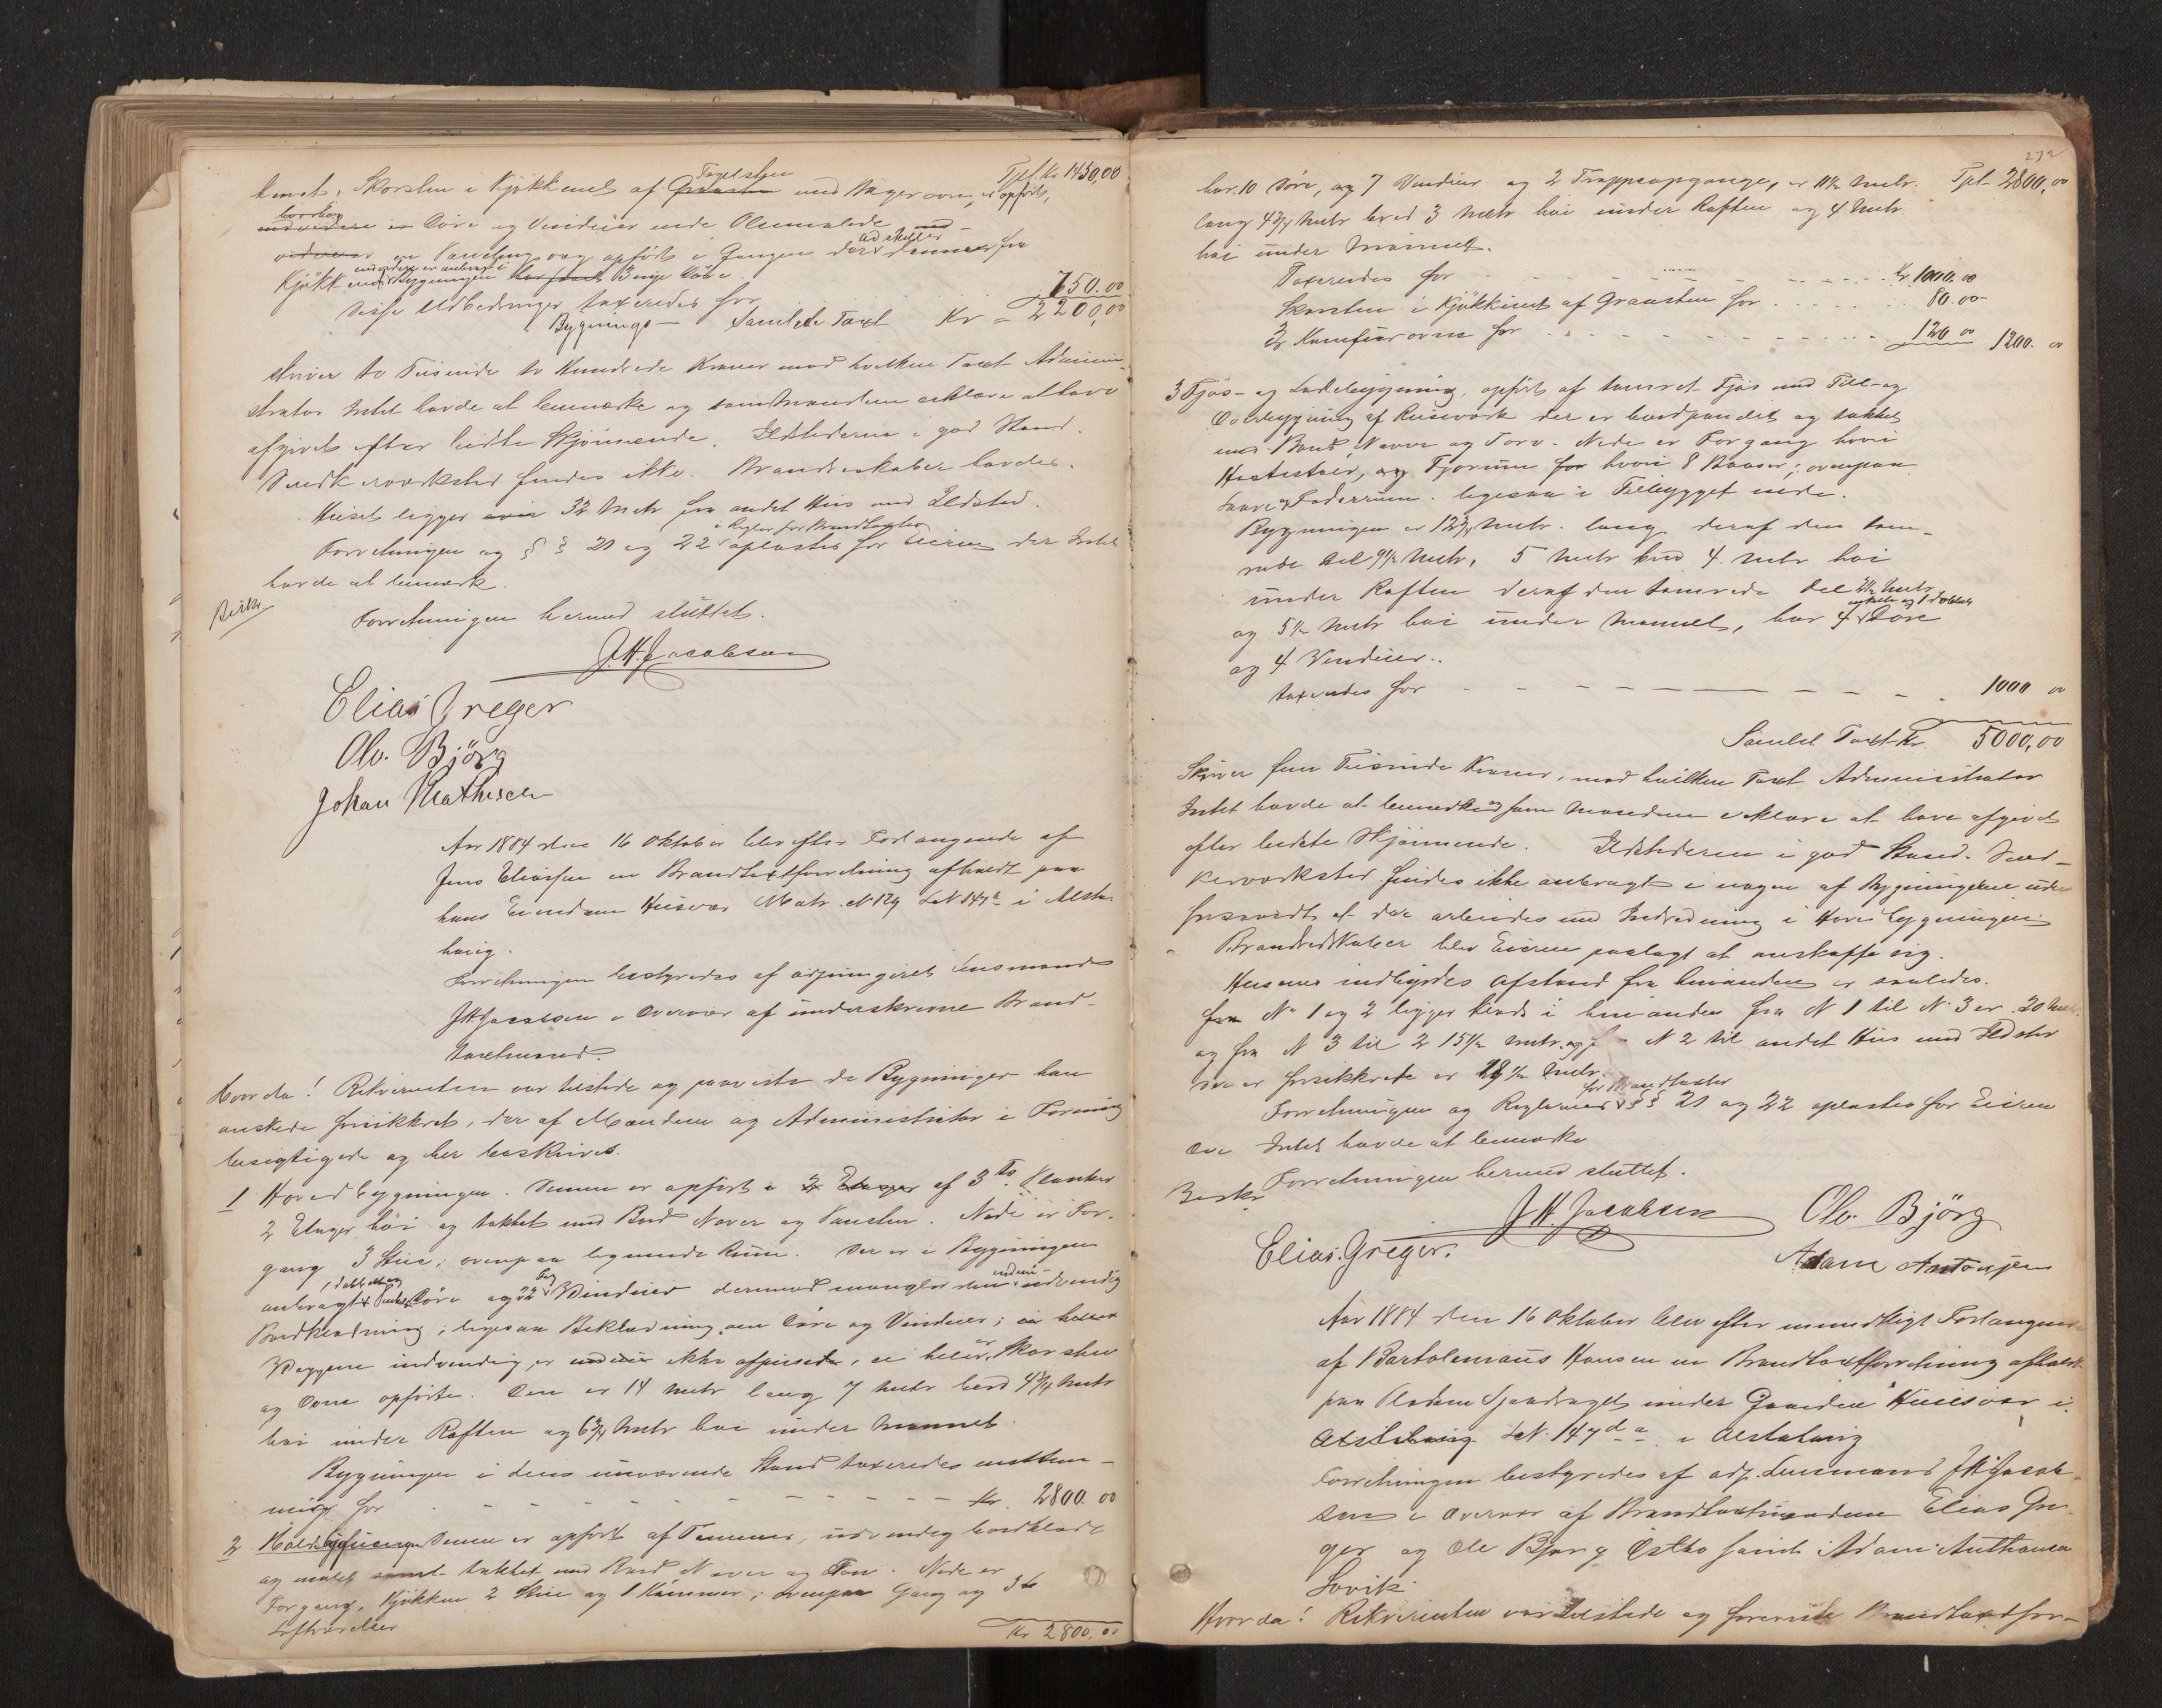 Tpt. Kr 1450,00
Tagelsten
Skorsten i Kjøkkenet af Graasten med Mager ovn, er opført,
Döre og Vinduer ende Oliemalede
en Paneling oag opført i Gangen der adskiller denne fra
Kjøkkenet Bygningen 3 nye Döre
Disse Udbedringer taxeredes for 750.00
Bygnings- Samlede Taxt Kr = 2200,00
skriver to Tusinde to Hundrede Kroner mod hvilken Taxt Admini-
strator Intet havde at bemærke og som Mændene erklære at have
afgivet efter bedste Skjönnende. Ildstederne i god Stand.
Snedkerværksted findes ikke. Brandredskaber havdes.
Huset ligger 32 Metr fra andet Hus med Ildsted.
i Regler for Brandtaxter
Forretningen og § § 21 og 22 oplæstes for Eieren der Intet
havde at bemærk.
Beskr
Forretningen hermed sluttet.
J.H. Jacobsen
Elias Greger
Ole. Björg
Johan Mathisen
Aar 1884 den 16 Oktober blev efter Forlangende af
Jens Eliassen en Brandtaxtforretning afholdt paa
hans Eiendom Husvær Matr. N 129 LN 147a i Alsta-
houg.
Forretningen bestyredes af adjungeret Lensmand
JHJacobsen i Overvær af underskrevne Brand-
taxtmænd.
Hvorda! Rekvirenten var tilstede og paaviste de Bygninger han
önskede forsikkret, der af Mændene og Administrator i Forening
besigtigede og her beskrives.
1 Hovedbygningen. Denne er opført i 2 Etager af 3 To. Planker
2 Etager høi og takket med Bord Næver og Pansten. Nede er For-
gang 3 Stue; ovenpaa lignende Rum. Der er i Bygningen
anbragt Döre og 22 Fag Vinduer dermed mangler den udvendig
Bordklædning; ligesaa Beklædning om Döre og Vinduer;
Væggene indvendig er ikke afpudsede, ei heller er Skorsten
og Ovne opførte. Den er 14 Metr lang 7 Metr bred 4 3/4 Metr
høi under Raften og 6 3/4 Metr høi under Mønnet.
Bygningen i dens nuværende Stand taxeredes enstem-
mig for - - - - - - Kr. 2800.00
2 Denne er opført af Tømmer, udvendig bordklædt
og malet samt takket med Bord Næver og Torv. Nede er
Forgang, Kjøkken 2 Stue og 1 Kammer; ovenpaa Gang og 3
Loftværelser
Kr 2800.00
272
har 10 Döre, og 7 Vinduer og 2 Trappeopgange, er 11 1/2 Metr. Tpt 2800,00
lang 4 3/4 Metr bred 3 Metr høi under Raften og 4 Metr
høi under Mønnet.
Taxeredes for - - - - - Kr 1000.00
Skorsten i Kjøkkenet af Graasten for - - - - 80.00
2 Komfuerovne for - - - - 120 00 1200.00
3 Fjøs- og Ladebygning, opført af tømret Fjøs med Till- og
Overbygning af Reisværk der er bordpandet og takket
med Bord, Næver og Torv. Nede er Forgang hvori
Hestestald, og Fjørum for hvori 8 Baaser; ovenpaa
Laave og Foderrum. ligesaa i Tilbygget nede.
Bygningen er 12 3/4 Metr. lang deraf den tøm-
rede Del 9 1/2 Metr, 5 Metr bred 4 Metr høi
under Raften deraf den tømrede Del 2 1/2 Metr
enkelte og 1 dobbelt
og 5 1/2 Metr høi under Mønnet, har 4 Döre
og 4 Vinduer..
taxeredes for - - - - - 1000 00
Samlet Taxt Kr. 5000,00
Skriver fem Tusinde Kroner, mod hvilken Taxt Administrator
Intet havde at bemærke og som Mændene erklære at have afgivet
efter bedste Skjönnende. Ildstederne i god Stand. Sned-
kerværksted findes ikke anbragt i nogen af Bygningerne uden
forsaavidt at der arbeides med Indredning i Hovedbygningen.
Brandredskaber blev Eieren paalagt at anskaffe sig.
Husenes indbyrdes Afstand fra hinanden er saaledes.
fra No 1 og 2 ligger klods i hinanden fra N 1 til N. 3 er 20 Metr.
og fra N 3 til 2 15 1/2 Metr. og f N 2 til andet Hus med Ildsted
der er forsikkrede er 18 1/2 Metr.
for Brandtaxter
Forretningen og Reglernes § § 21 og 22 oplæstes for Eieren
der Intet havde at bemærke
Forretningen hermed sluttet.
Beskr
J.H. Jacobsen Ole. Björg
Elias. Greger. Adam Antonsen
Aar 1884 den 16 Oktober blev efter mundtligt Forlangende
af Bartolemæus Hansen en Brandtaxtforretning afholdt
paa Pladsen under Gaarden Husvær i
LN. 147 d a i Alstahaug
Forretningen bestyredes af adj. Lensmand JH Jacob-
sen i Overvær af Brandtaxtmændene Elias Gre-
ger og Ole Bjørg samt Adam Anthonsen
Sovik.
Hvorda! Rekvirenten var tilstede og Brandtaxtfor-